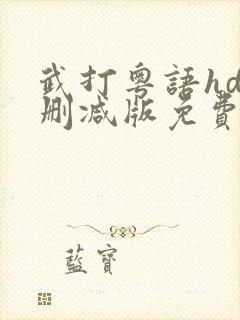 武打粵語hd
刪减版免費
藍寶